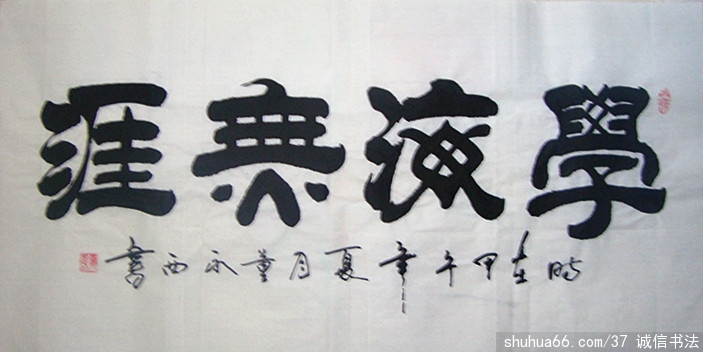 學海無涯
時在甲午年夏月董永西書
shuhua66.com/37 诚信书法